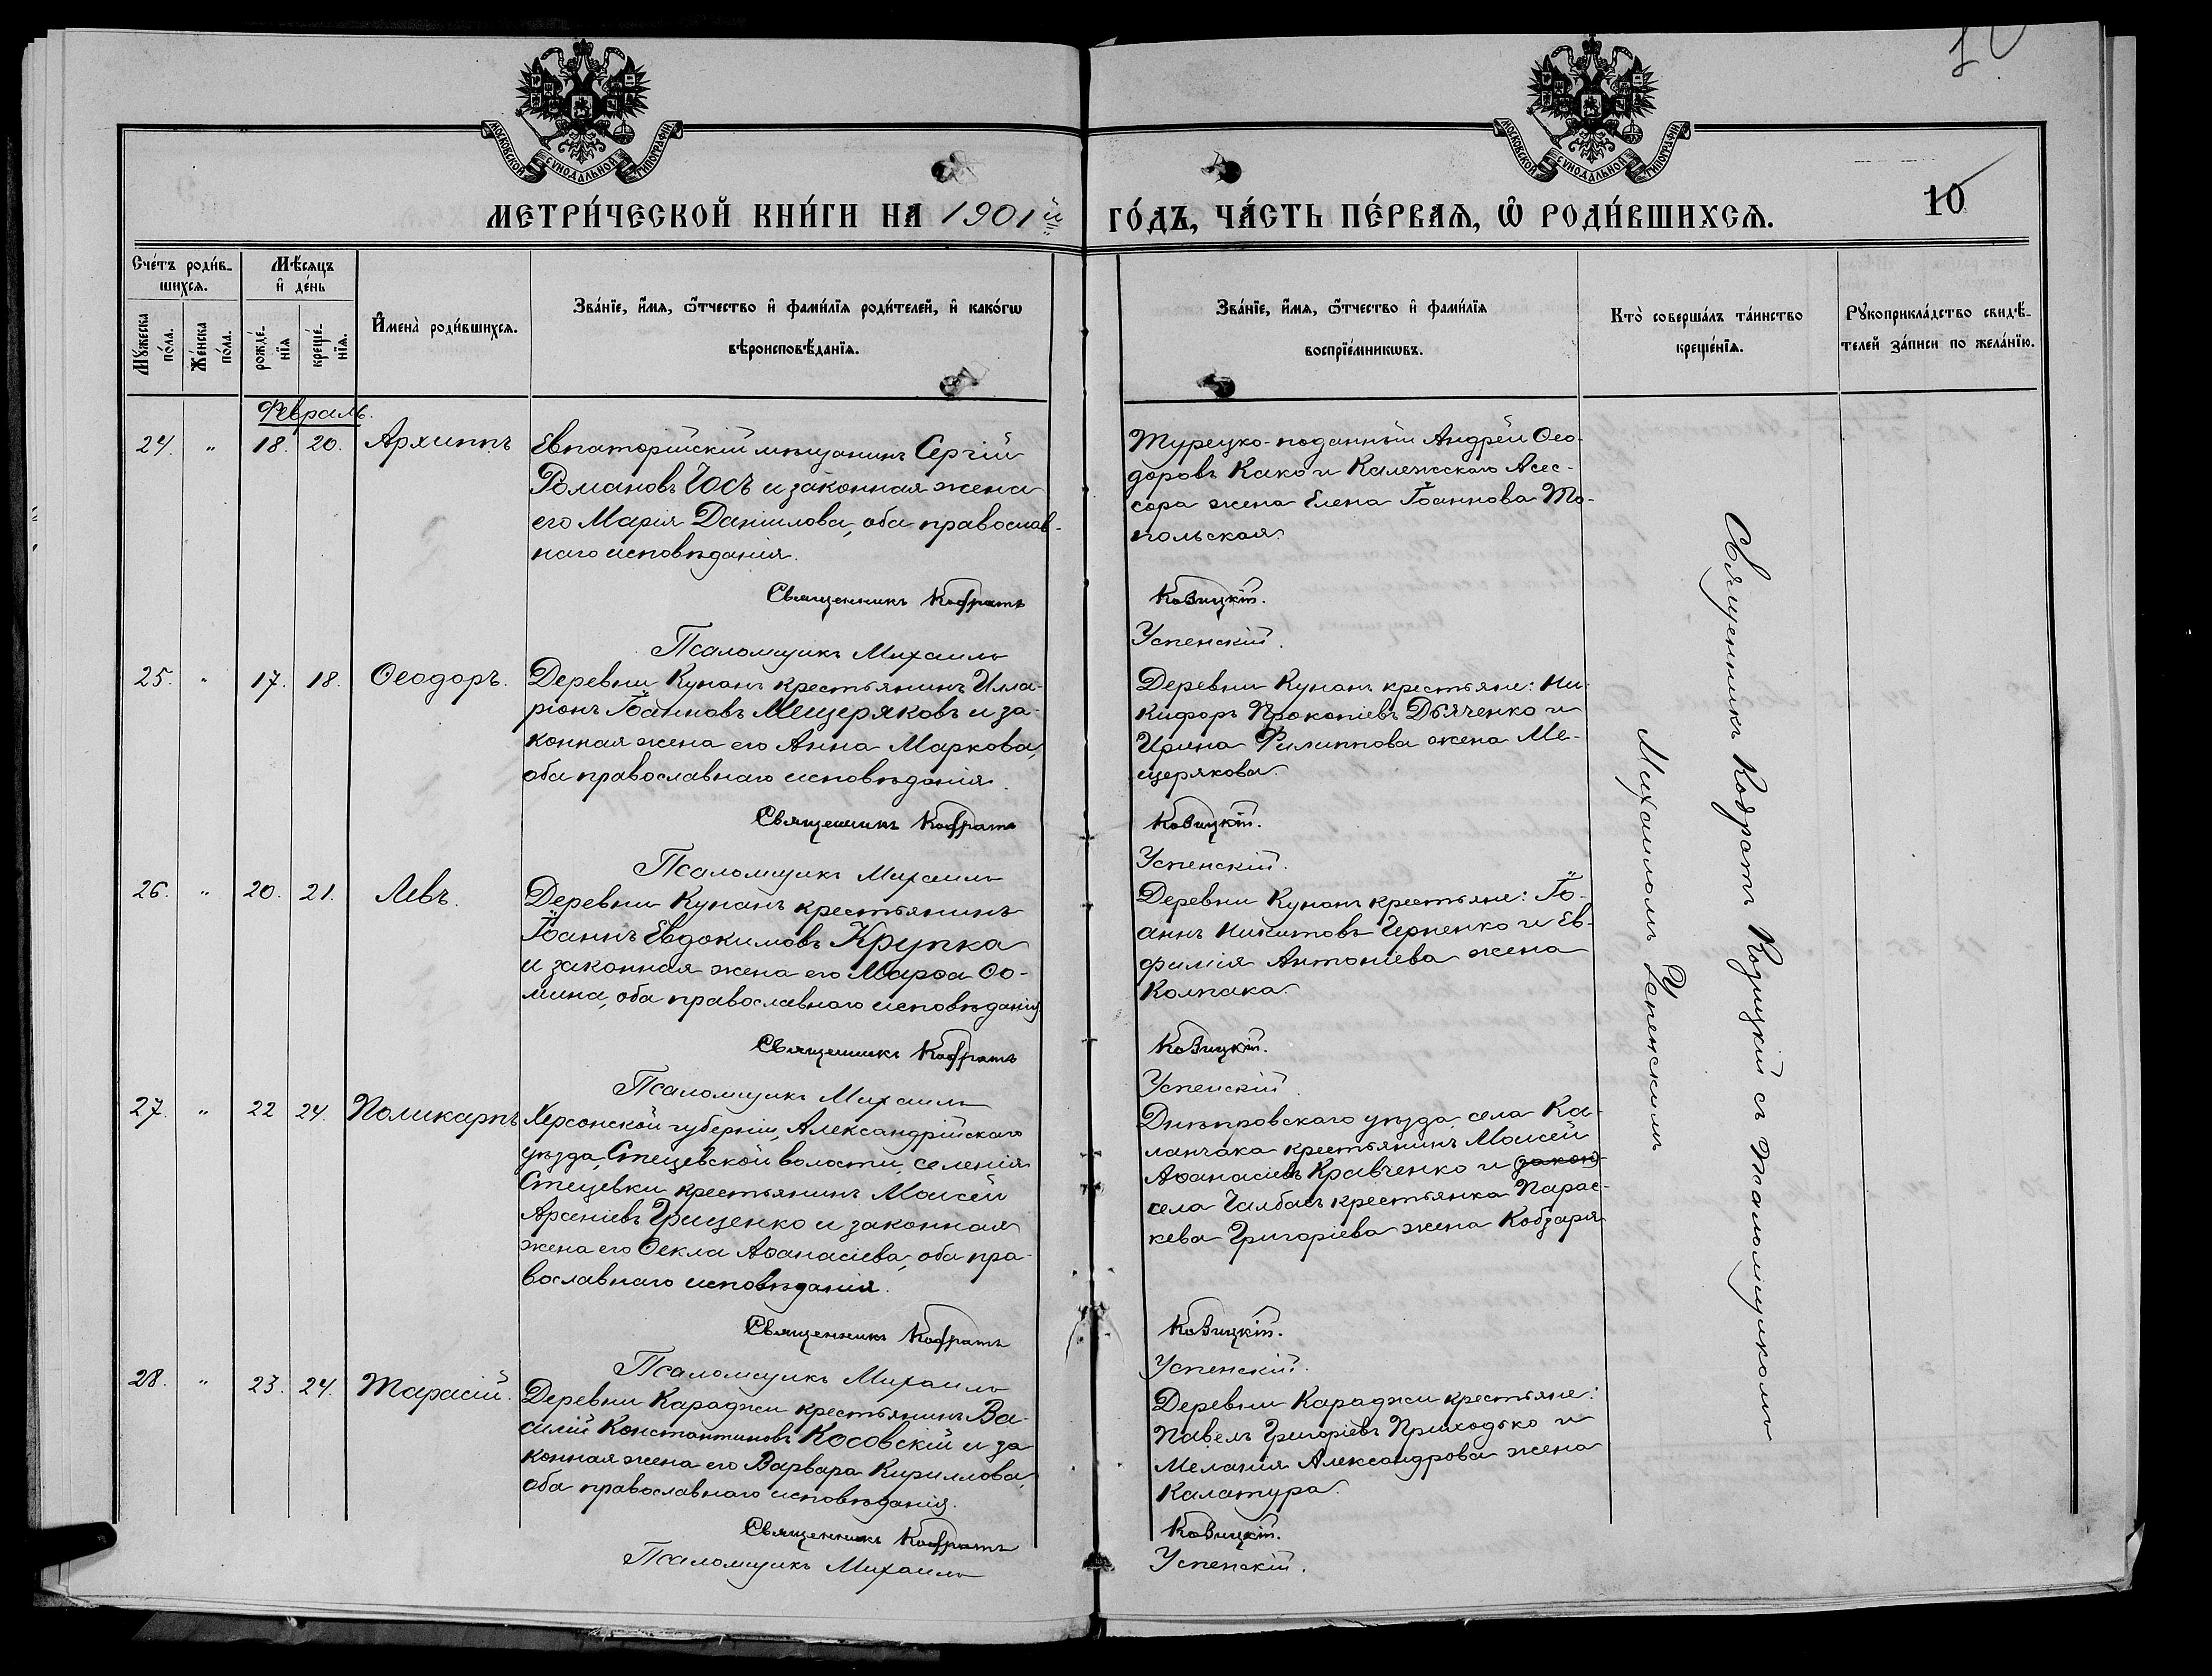 10
МОСКОВСКОЙ СѴНОДАЛЬНОЙ ТИПОГРАФІИ
МОСКОВСКОЙ СѴНОДАЛЬНОЙ ТИПОГРАФІИ
МЕТРИ́ЧЕСКОЙ КНИ́ГИ НА 1901й
ГО́ДЪ, ЧА́СТЬ ПЕ́РВАѦ, Ѡ҆ РОДИ́ВШИХСѦ.
Сче́тъ роди́в-
шихсѧ.
Мꙋ́жеска
по́ла.
Же́нска
по́ла.
Мѣ́сѧцъ
и҆ де́нь
рожде́-
нїѧ
креще́-
нїѧ.
И҆мена̀ роди́вшихсѧ.
Зва́нїе, и҆́мѧ, ѻ҆́тчество и҆ фами́лїѧ роди́телей, и҆ како́гѡ
вѣроисповѣ́данїѧ.
Зва́нїе, и҆́мѧ, ѻ҆́тчество и҆ фами́лїѧ
воспрїе́мникѡвъ.
Кто̀ соверша́лъ та́инство
креще́нїѧ.
Рꙋкоприкла́дство свидѣ́-
телей за́писи по жела́нїю.
Февраль.
24. " 18. 20. Архиппъ
Евпаторійскій мѣщанинъ Сергій
Романовъ Госъ и законная жена
его Марія Даніилова, оба православ-
наго исповѣданія.
Священникъ Кодратъ
Псаломщикъ Михаилъ
Турецко-поданный Андрей Ѳео-
доровъ Како и Калежскаго Асес-
сора жена Елена Іоаннова То-
польская.
Козицкій.
Успенскій.
25. " 17. 18. Ѳеодоръ.
Деревни Кунанъ крестьянинъ Илла-
ріонъ Іоанновъ Мещеряковъ и за-
конная жена его Анна Маркова,
оба православнаго исповѣданія.
Священникъ Кодратъ
Псаломщикъ Михаилъ
Деревни Кунанъ крестьяне: Ни-
кифоръ Прокопіевъ Дьяченко и
Ирина Филиппова жена Ме-
щерякова.
Козицкій.
Успенскій.
26. " 20. 21. Левъ.
Деревни Кунанъ крестьянинъ
Іоаннъ Евдокимовъ Крупка
и законная жена его Марѳа Ѳо-
мина, оба православнаго исповѣданія
Священникъ Кодратъ
Псаломщикъ Михаилъ
Деревни Кунанъ крестьяне: Іо-
аннъ Никитовъ Черненко и Ев-
фимія Антоніева жена
Колпака.
Козицкій.
Успенскій.
27. " 22 24. Поликарпъ
Херсонской губерніи, Александрійскаго
уѣзда, Стецевской волости, селенія
Стецевки крестьянинъ Моисей
Арсеніевъ Грищенко и законная
жена его Ѳекла Аѳанасіева, оба пра-
вославнаго исповѣданія.
Священникъ Кодратъ
Псаломщикъ Михаилъ
Днѣпровскаго уѣзда села Ка-
ланчака крестьянинъ Моисей
Аѳанасіевъ Кравченко и (закон)
села Чалбасъ крестьянка Парас-
кева Григоріева жена Кобзаря
Козицкій.
Успенскій.
28. " 23. 24. Тарасій.
Деревни Караджи крестьянинъ Ва-
силій Константиновъ Косовскій и за-
конная жена его Варвара Кириллова,
оба православнаго исповѣданія.
Священникъ Кодратъ
Псаломщикъ Михаилъ
Деревни Караджи крестьяне:
Павелъ Григоріевъ Приходько и
Меланія Александрова жена
Калатура.
Козицкій.
Успенскій.
Священникъ Кодратъ Козицкій съ псаломщикомъ
Михаиломъ Успенскимъ